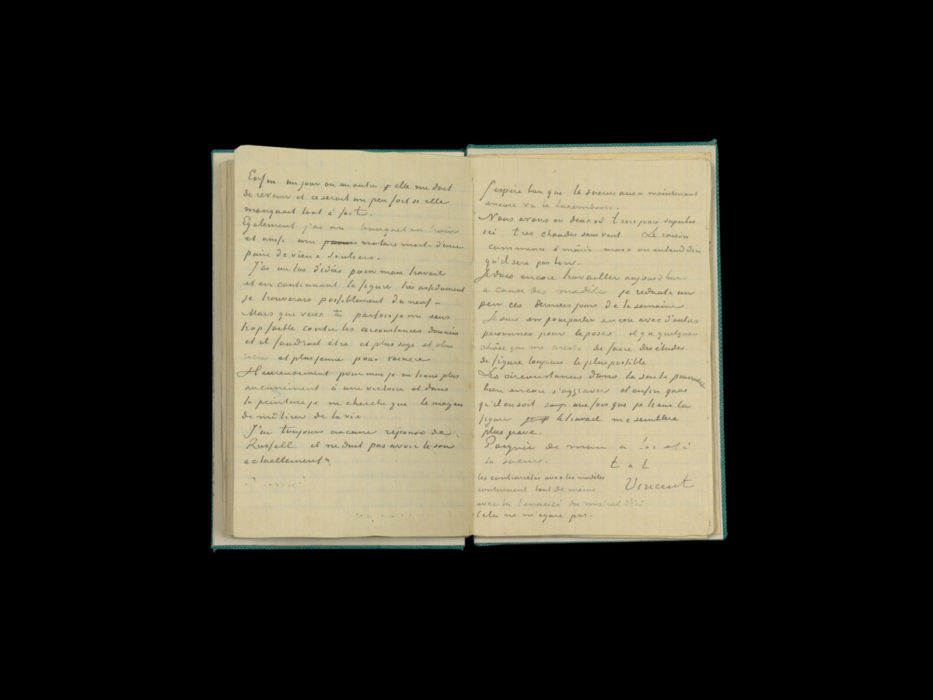 Enfin un jour ou un autre elle me doit
de revenir et ce serait un peu fort si elle
manquait tout à fait.
Egalement j'ai un bouquet en train
et aussi une nature morte d'une
paire de vieux souliers.
J'ai un tas d'idées pour mon travail
et en continuant la figure très assidument
je trouverais possiblement du neuf –
Mais que veux tu parfois je me sens
trop faible contre les circonstances données
et il faudrait être et plus sage et plus
riche et plus jeune pour vaincre
Heureusement pour moi je ne tiens plus
aucunement à une victoire et dans
la peinture je ne cherche que le moyen
de me tirer de la vie
J'ai toujours aucune réponse de
Russell il ne doit pas avoir le son
actuellement
J'espère bien que la soeur aura maintenant
encore vu le Luxembourg.
Nous avons eu deux où trois jours superbes
ici très chaudes sans vent. Le raisin
commence à mûrir mais on entend dire
qu'il sera pas bon.
Je dois encore travailler aujourd'hui
à cause des modèles je redoute un
peu ces derniers jours de la semaine
Je suis en pourparler encore avec d'autres
personnes pour la pose, il y a quelque
chose qui me de faire des études
de figure toujours le plus possible
Les circonstances dans la suite pourraient
bien encore s'aggraver et enfin quoi
qu'il en soit une fois que je tienne la
figure le travail me semblera
plus grave.
Poignée de main à toi et à
la soeur.
t à t
Vincent
les contrariétés avec les modèles
continuent tout de même
avec la tenacité du mistral d'ici
Cela ne m'égaye pas.